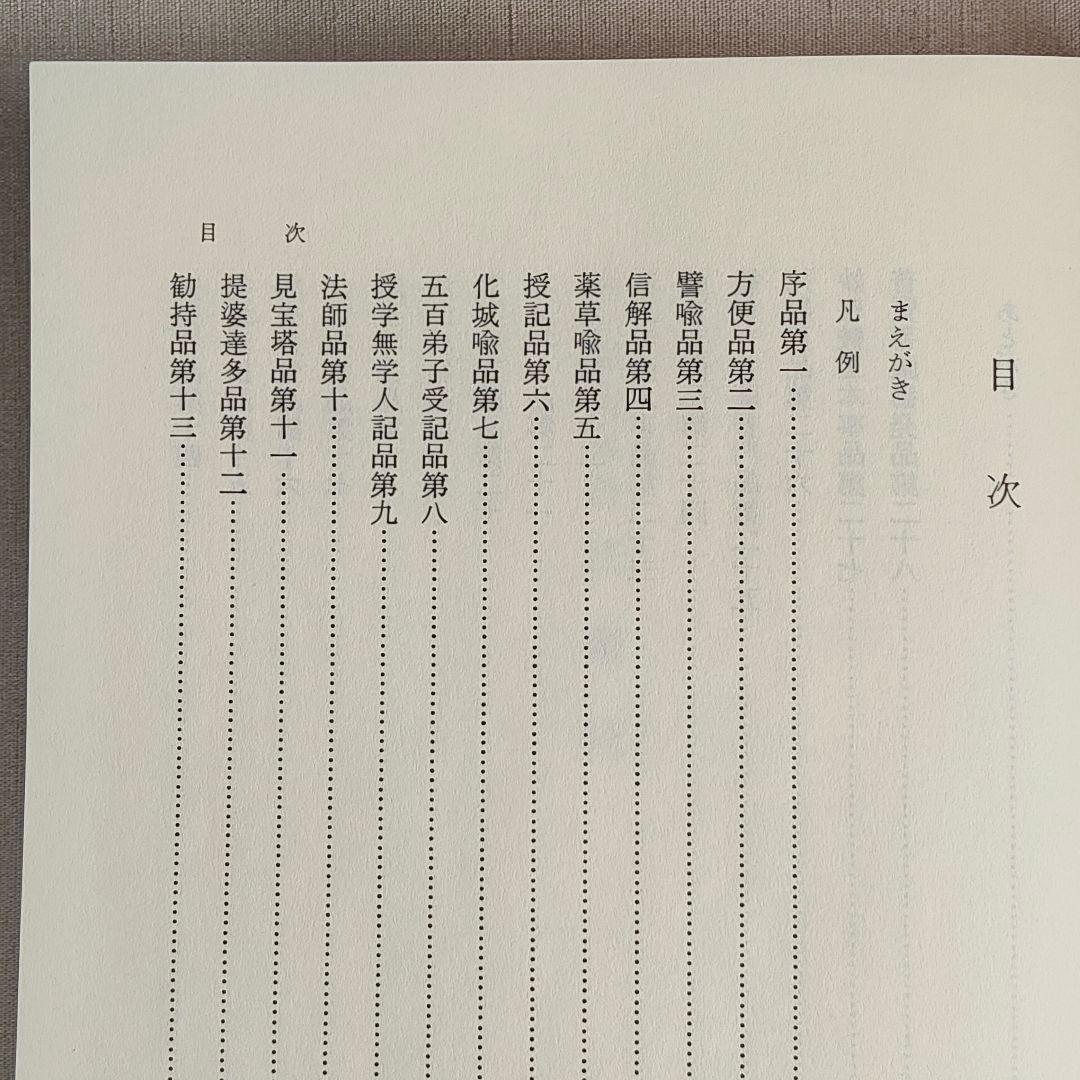 目次
まえがき
凡例
序品第一
方便品第二
譬喩品第三
信解品第四
薬草喩品第五
授記品第六
化城喩品第七
五百弟子受記品第八
授学無学人記品第九
法師品第十
見宝塔品第十一
提婆達多品第十二
勧持品第十三
目次